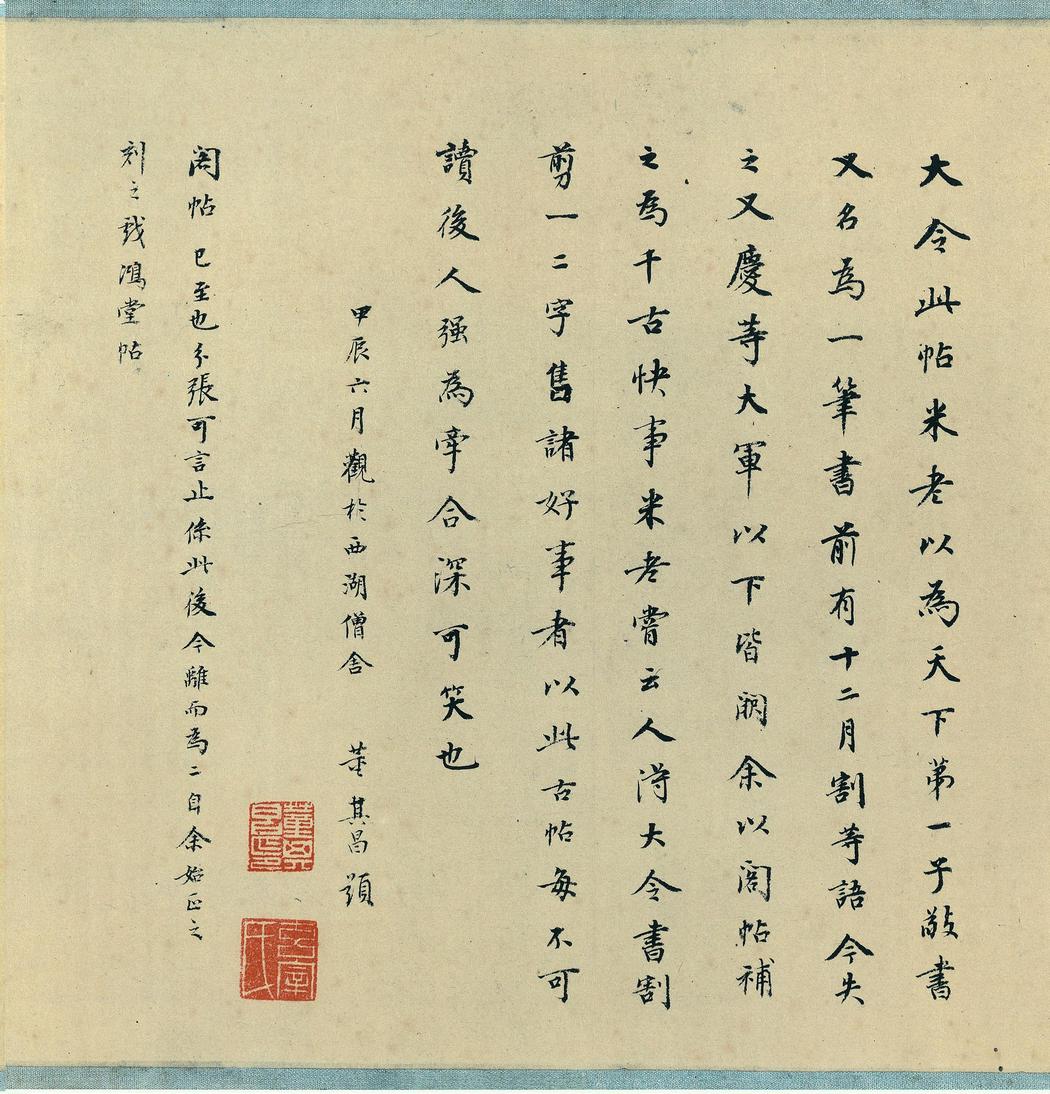 大令此帖米老以為天下第一子敬書
又名為一筆書前有十二月割等語今失
之又慶等大軍以下皆闕余以閣帖補
之為千古快事米老嘗云人得大令書割
剪一二字售諸好事者以此古帖每不可
讀後人强為牽合深可笑也
甲辰六月觀於西湖僧舍 董其昌題
閣帖 已至也分張可言止係此後今離而為二自余始正之
刻之戏鴻堂帖